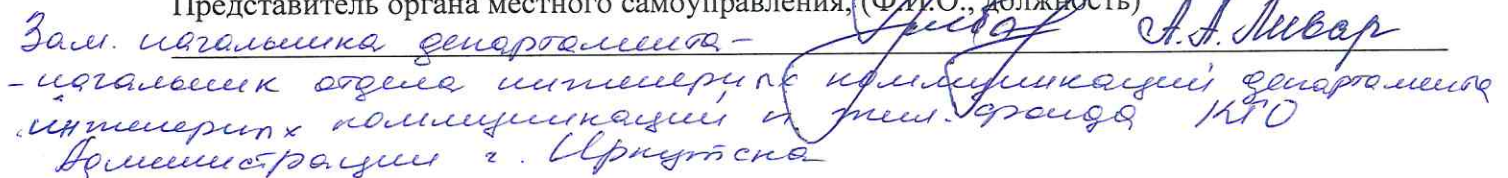 Представитель органа местного самоуправления, (Ф.И.О., должность)
Зам. начальника департамента – А.А. Ливар
- начальник отдела инженерных коммуникаций департамента
инженерных коммуникаций и жил. фонда КГО
Администрации г. Иркутска